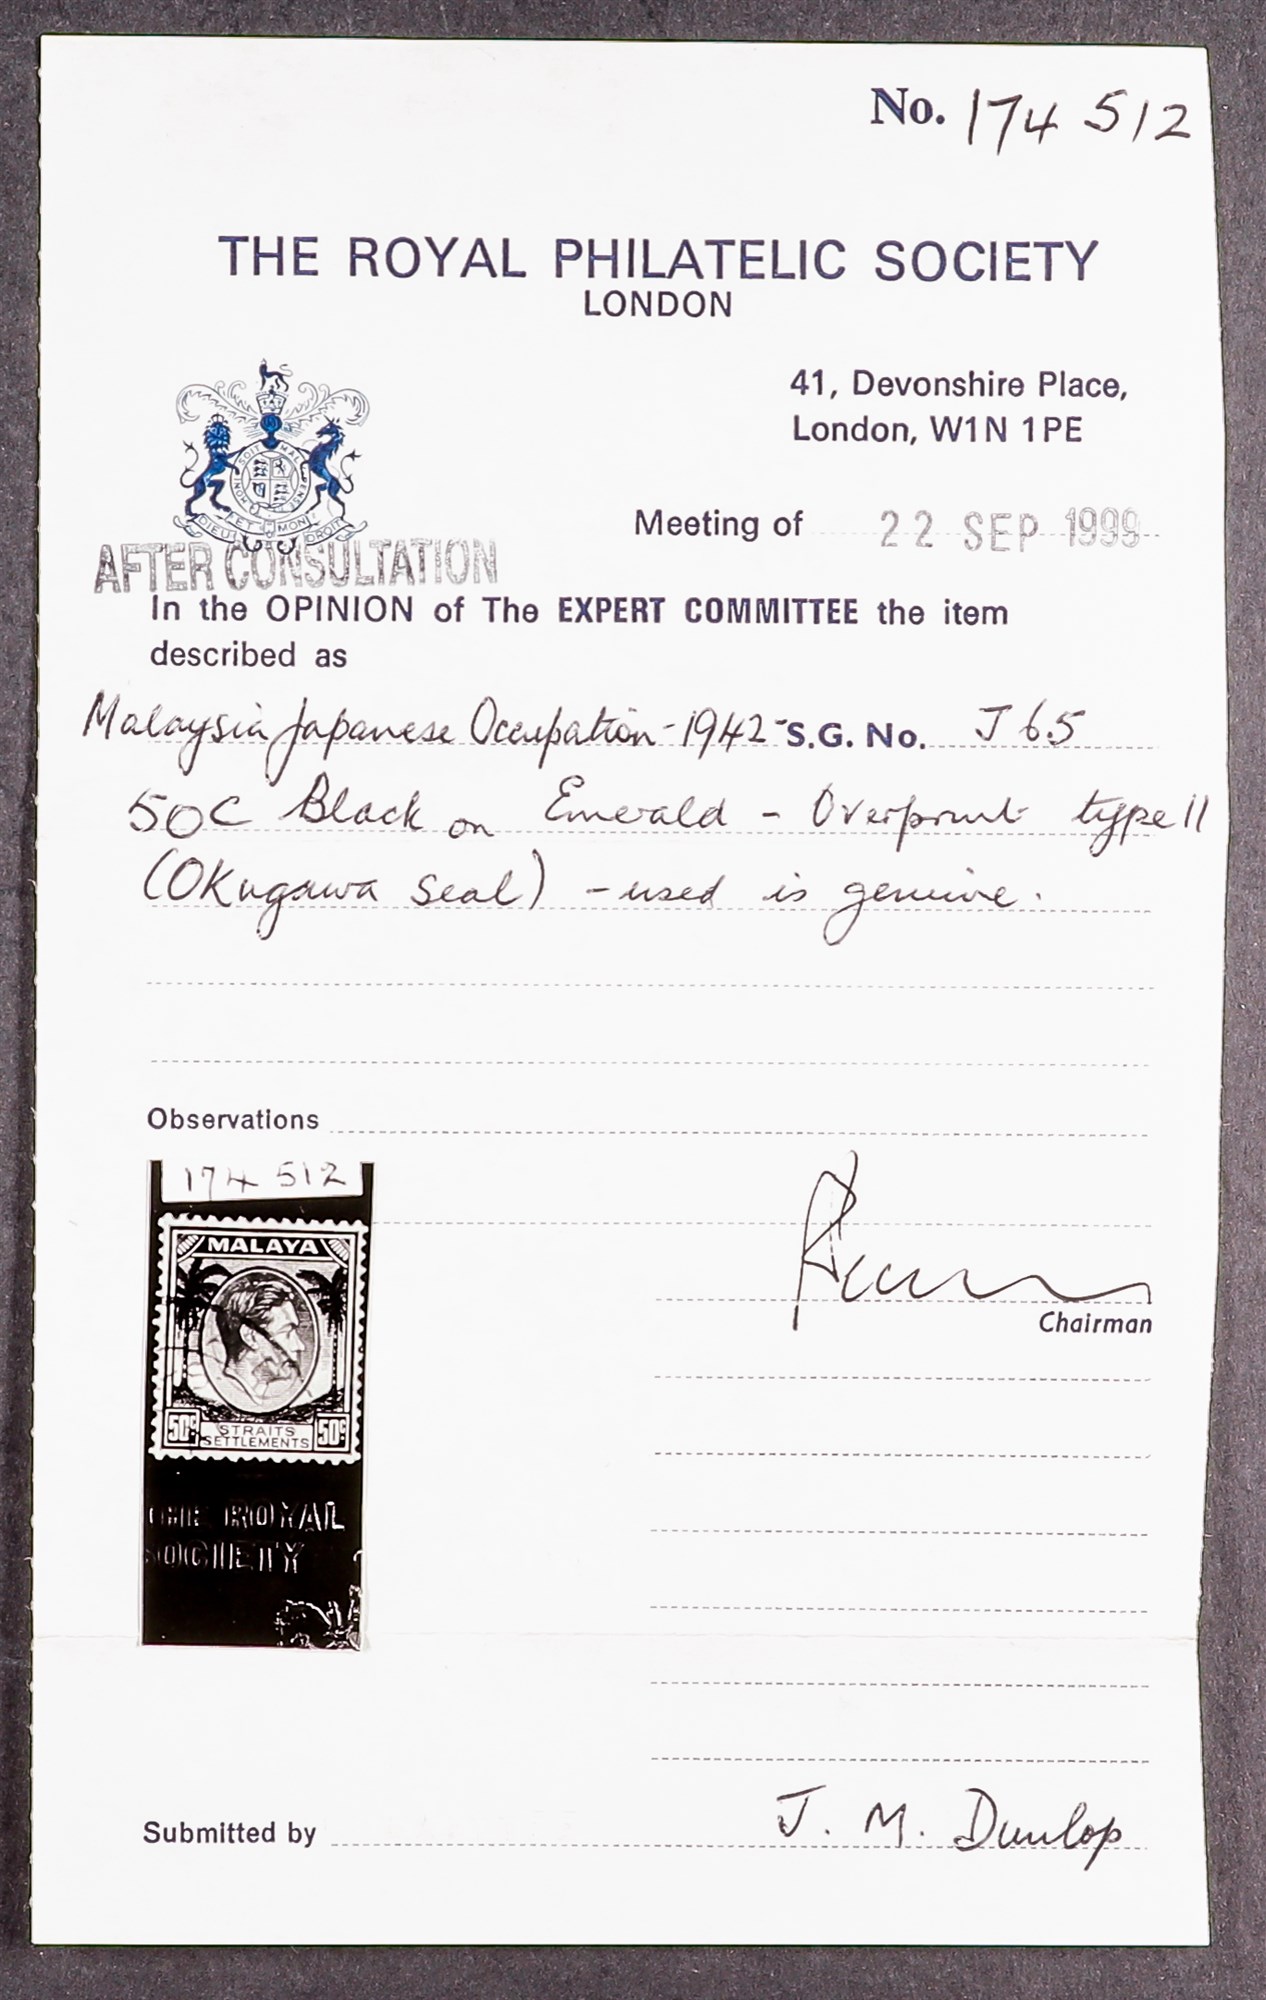 No. 174 512
THE ROYAL PHILATELIC SOCIETY
LONDON
41, Devonshire Place,
London, W1N 1PE
HONI SOIT MAL PENSE
DIEU ET MON DROIT
Meeting of 22 SEP 1999
AFTER CONSULTATION
In the OPINION of The EXPERT COMMITTEE the item
described as
Malaysia Japanese Occupation - 1942 - S.G. No. J65
50C Black on Emerald - Overprint type 11
(Okugawa Seal) - used is genuine.
Observations
174 512
MALAYA
50c STRAITS SETTLEMENTS 50c
THE ROYAL
SOCIETY
Chairman
Submitted by J. M. Dunlop